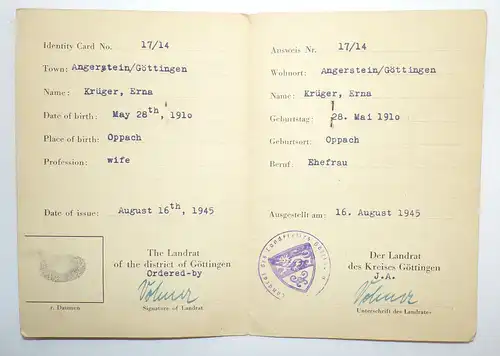 Identity Card No. 17/14
Town: Angerstein/Göttingen
Name: Krüger, Erna
Date of birth: May 28th, 1910
Place of birth: Oppach
Profession: wife
Date of issue: August 16th, 1945
The Landrat
of the district of Göttingen
Ordered-by
Signature of Landrat
r. Daumen
Ausweis Nr. 17/14
Wohnort: Angerstein/Göttingen
Name: Krüger, Erna
Geburtstag: 28. Mai 1910
Geburtsort: Oppach
Beruf: Ehefrau
Ausgestellt am: 16. August 1945
Der Landrat
des Kreises Göttingen
J.A.
Unterschrift des Landrates